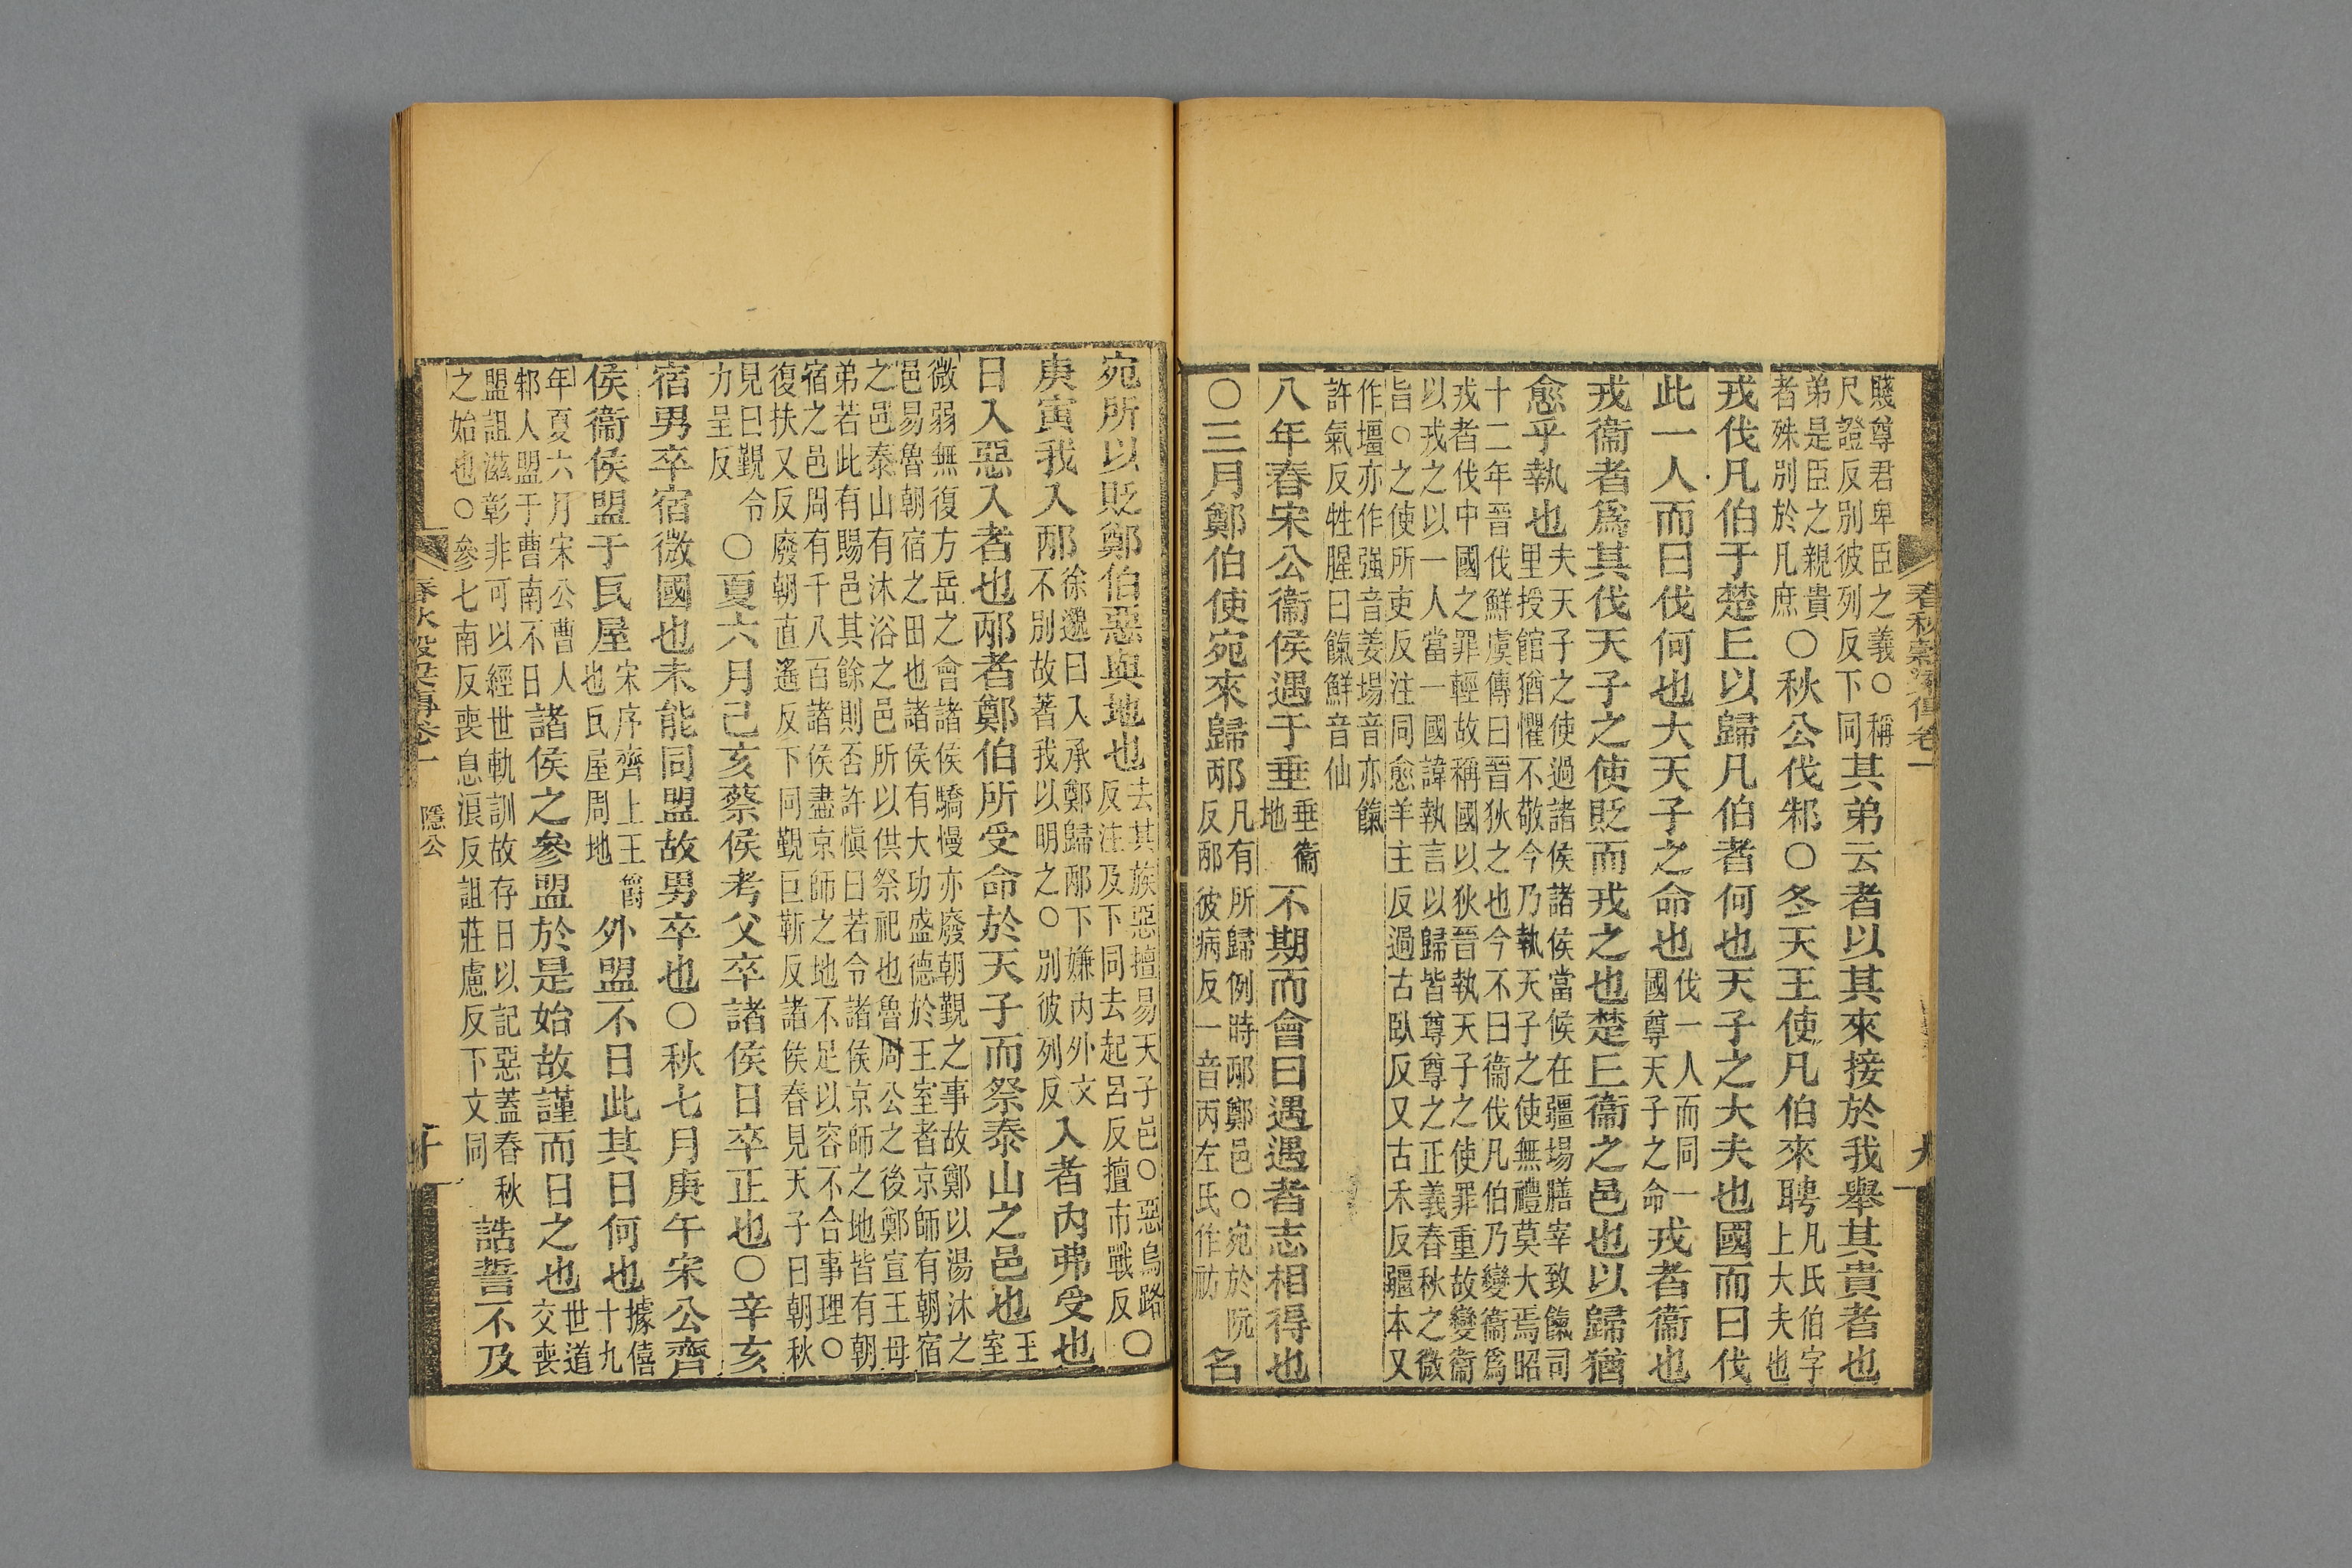 賤尊君卑臣之義○稱尺證反別彼列反下同其弟云者以其來接於我舉其貴者也
弟是臣之親貴者殊別於凡庶○秋公伐邾○冬天王使凡伯來聘凡氏伯字上大夫也
戎伐凡伯于楚丘以歸凡伯者何也天子之大夫也國而曰伐
此一人而曰伐何也大天子之命也伐一人而同一國尊天子之命戎者衞也
戎衞者爲其伐天子之使貶而戎之也楚丘衞之邑也以歸猶
愈乎執也夫天子之使過諸侯諸侯當候在疆場膳宰致餼司里授館猶懼不敬今乃執天子之使無禮莫大焉昭
十二年晉伐鮮虞傳曰晉狄之也今不曰衞伐凡伯乃變衞爲戎者伐中國之罪輕故稱國以狄晉執天子之使罪重故變衞
以戎之以一人當一國諱執言以歸皆尊尊之正義春秋之微旨○之使所吏反注同愈羊主反過古臥反又古禾反疆本又
作壃亦作强音姜場音亦餼許氣反牲腥曰餼鮮音仙
八年春宋公衞侯遇于垂垂衞地不期而會曰遇遇者志相得也
○三月鄭伯使宛來歸邴凡有所歸例時邴鄭邑○宛於阮反邴彼病反一音丙左氏作祊名
宛所以貶鄭伯惡與地也去其族惡擅易天子邑○惡烏路反注及下同去起呂反擅市戰反○
庚寅我入邴徐邈曰入承鄭歸邴下嫌內外文不別故著我以明之○別彼列反入者內弗受也
日入惡入者也邴者鄭伯所受命於天子而祭泰山之邑也王室
微弱無復方岳之會諸侯驕慢亦廢朝覲之事故鄭以湯沐之邑易魯朝宿之田也諸侯有大功盛德於王室者京師有朝宿
之邑泰山有沐浴之邑所以供祭祀也魯周公之後鄭宣王母弟若此有賜邑其餘則否許愼曰若令諸侯京師之地皆有朝
宿之邑周有千八百諸侯盡京師之地不足以容不合事理○復扶又反廢朝直遙反下同覲巨靳反諸侯春見天子曰朝秋
見曰覲令力呈反○夏六月己亥蔡侯考父卒諸侯日卒正也○辛亥
宿男卒宿微國也未能同盟故男卒也○秋七月庚午宋公齊
侯衞侯盟于瓦屋宋序齊上王爵也瓦屋周地外盟不日此其日何也據僖十九
年夏六月宋公曹人邾人盟于曹南不日諸侯之參盟於是始故謹而日之也世道交喪
盟詛滋彰非可以經世軌訓故存日以記惡蓋春秋之始也○參七南反喪息浪反詛莊慮反下文同誥誓不及
春秋穀梁傳卷一
隱公